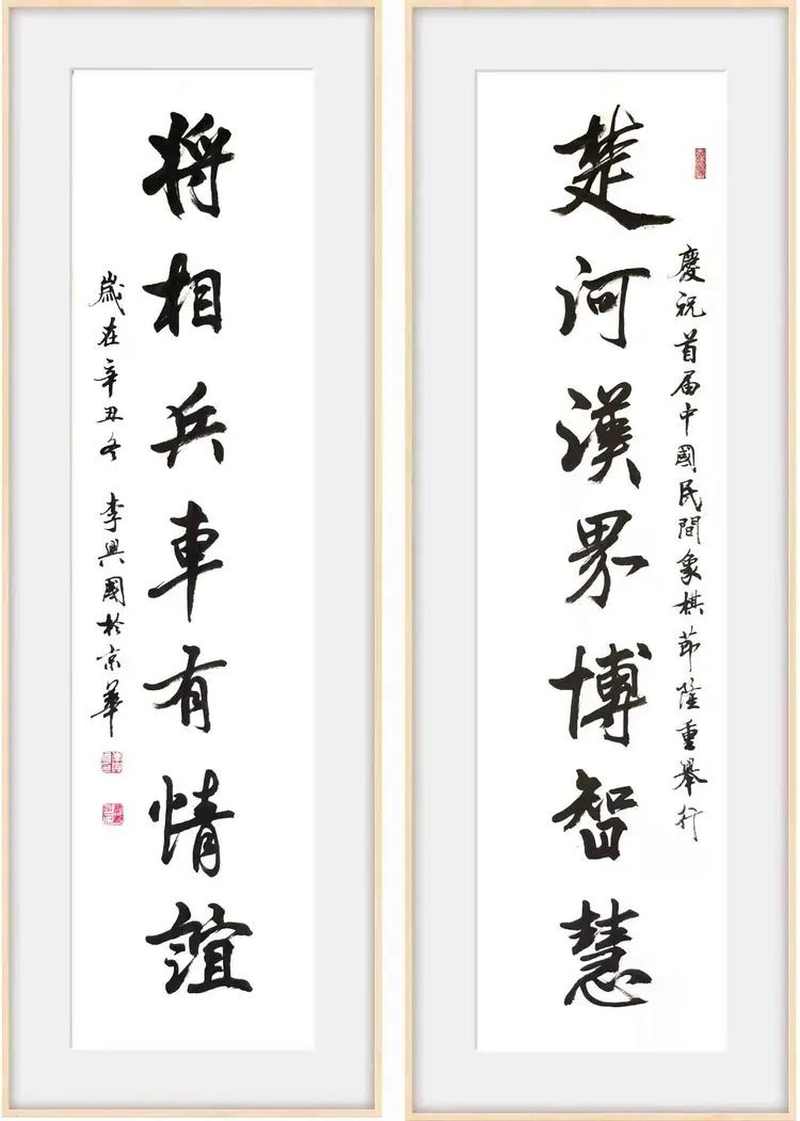 慶祝首届中國民間象棋節隆重舉行
楚河漢界博智慧
将相兵車有情誼
歲在辛丑冬 李興國於京華